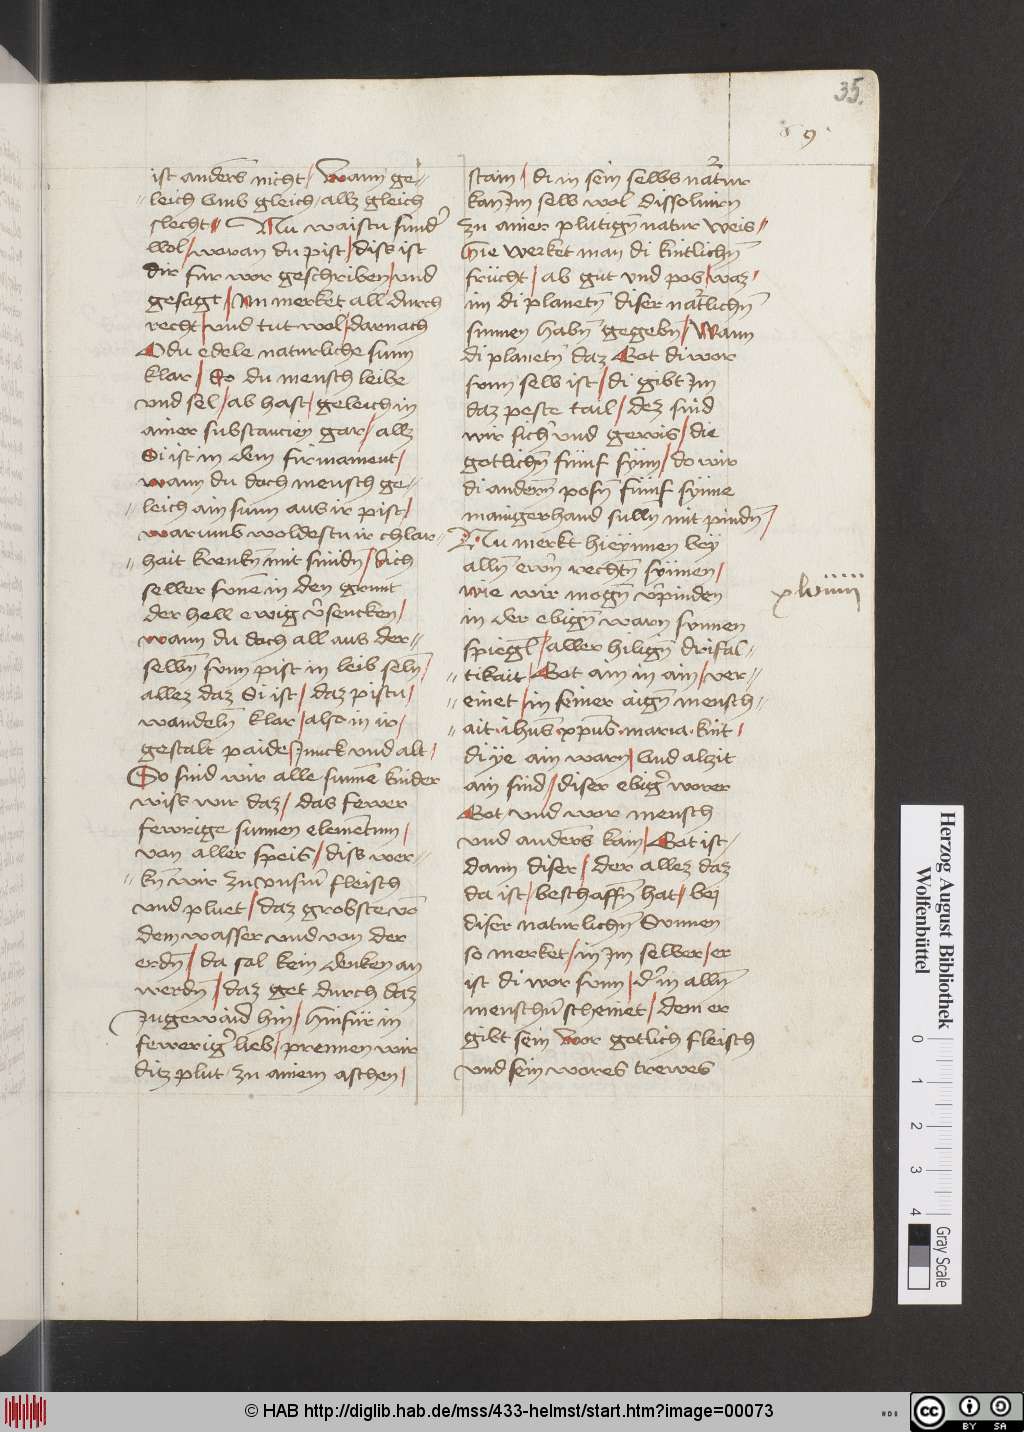 35.
9
ist anders nicht / Wann ge-
leich vmb gleich / allz gleich
slecht / Nu waistu sunder
wol / woran du pist / diss ist
dir fur wor geschriben / vnd
gesagt / Nu merket all durch
recht / vnd tut wol / darnach
O du edele naturliche sunn
klar / So du mensch leibe
vnd sel / ab hast / geleich in
ainer substancien gar / allz
Si ist in dem firmament /
wann du doch mensch ge-
leich ain sunn aus ir pist /
warumb woldestu ir chlar-
hait krenkn̄ mit sundn̄ / dich
selber in den grunt
der hell ewig v̄sencken /
wann du doch all aus der-
selbn̄ sunn pist in leib seln̄ /
allez daz Si ist / daz pistu /
wandeln̄ klar / also in ir /
gestalt paide / Junck vnd alt /
So sind wir alle sunne kinder
wiss wir daz / das fewer
fewrige sunnen elementum /
von aller speis / diss wer-
kn̄ wir zu vnsm̄ fleisch
vnd pluet / daz grobste vō
dem wasser vnd von der
erdn̄ / da sol kein denken an
werdn̄ / daz get durch daz
Jngewaid hin / hinfür in
feweriger lieb / prennen wir
ditz plut zu ainem aschen /
stain / di in sein selbs natur
kan Jm selb wol dissoluirn
zu ainer plutign̄ natur weis
Hie werket man di kintlichn̄
frücht / ab gut vnd pos / waz
im di planetn̄ diser natlichn̄
sunnen habn̄ gegebn̄ / Wann
di planetn̄ daz Got di wor
sunn selb ist / di gibt Jm
daz peste tail / dez sind
wir sich vnd gewis / die
gotlichn̄ fünf synn / do wir
di andern̄ posn̄ fünf synne
manigerhand sulln̄ mit pindn̄ /
Nu merkt hieynnen bey
alln̄ ern̄ rechtn̄ synnen /
wie wir mogn̄ v̄pinden
in der ebign̄ warn sunnen
spiegl̄ / aller hilign̄ drifal-
tikait / Got ain in ain / ver-
einet / in seiner aign̄ mensch-
ait · ihūs xp̄us · maria · kint /
di ye ain warn / vnd alzit
ain sind / diser ebiger worer
Got vnd wor mensch
vnd anders kain / Got ist /
dann diser / der allez daz
da ist / beschaffn̄ hat / bei
diser naturlichn̄ Sunnen
so merket / in Jm selber / er
ist di wor sunn / der in alln̄
menschn̄ scheinet / dem er
gibt sein wor gotlich fleisch
vnd sein wores trewes
Herzog August Bibliothek
Wolfenbüttel
0 1 2 3 4
Gray Scale
© HAB http://diglib.hab.de/mss/433-helmst/start.htm?image=00073
cc BY SA